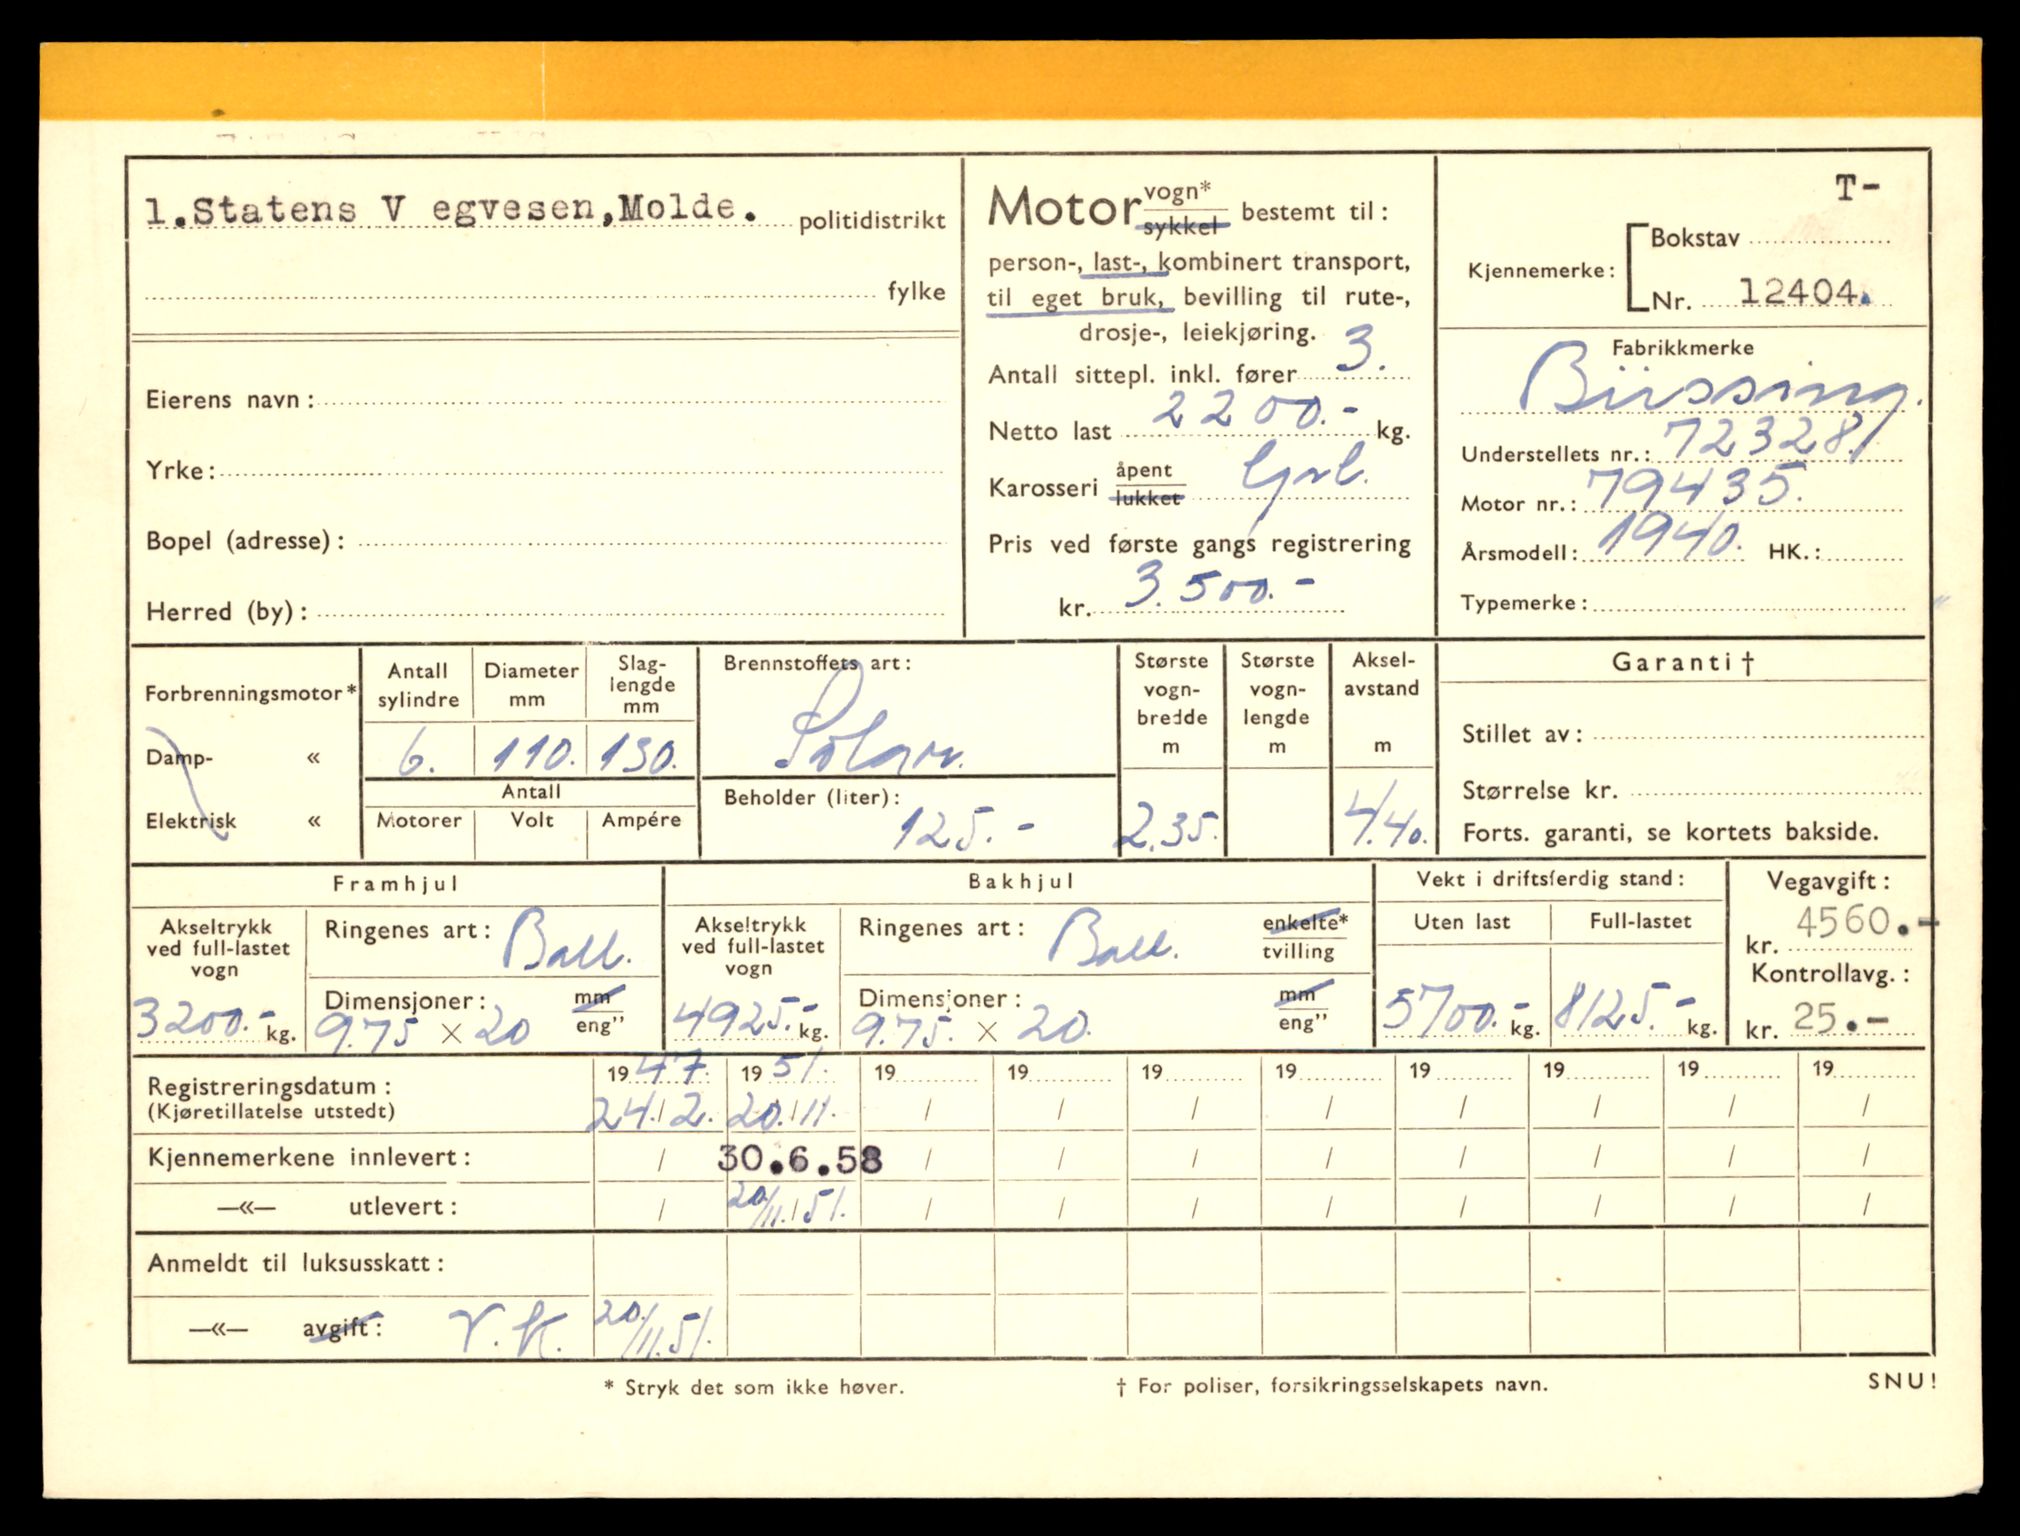 1.Statens V egvesen,Molde. politidistrikt
fylke
Eierens navn:
Yrke:
Bopel (adresse):
Herred (by):
Motor vogn* sykkel bestemt til:
person-, last-, kombinert transport,
til eget bruk, bevilling til rute-,
drosje-, leiekjøring.
Antall sittepl. inkl. fører 3.
Netto last 2200.- kg.
Karosseri åpent lukket
Pris ved første gangs registrering
kr. 3.500.-
T-
Kjennemerke: Bokstav
Nr. 12404.
Fabrikkmerke
Büssing.
Understellets nr.: 723281
Motor nr.: 79435.
Årsmodell: 1940. HK.:
Typemerke:
Forbrenningsmotor*
Damp- «
Elektrisk «
Antall sylindre 6.
Diameter mm 110.
Slag-lengde mm 130.
Antall
Motorer Volt Ampére
Brennstoffets art:
Solarv.
Beholder (liter):
125.-
Største vogn-bredde m 2.35.
Største vogn-lengde m
Aksel-avstand m 4.40.
Garanti †
Stillet av:
Størrelse kr.
Forts. garanti, se kortets bakside.
Framhjul
Akseltrykk ved full-lastet vogn
3200.- kg.
Ringenes art: Ball.
Dimensjoner: mm eng”
9.75 × 20
Bakhjul
Akseltrykk ved full-lastet vogn
4925.- kg.
Ringenes art: Ball. enkelte* tvilling
Dimensjoner: mm eng”
9.75. × 20.
Vekt i driftsferdig stand:
Uten last Full-lastet
5700.- kg. 8125.- kg.
Vegavgift:
kr. 4560.-
Kontrollavg.:
kr. 25.-
Registreringsdatum: 1947. 1951. 19 19 19 19 19 19 19 19
(Kjøretillatelse utstedt) 24./2. 20./11. / / / / / / / /
Kjennemerkene innlevert: / 30.6.58 / / / / / / / /
—«— utlevert: / 20/11.51. / / / / / / / /
Anmeldt til luksusskatt:
—«— avgift: V.K. 20./11.51.
* Stryk det som ikke høver. † For poliser, forsikringsselskapets navn. SNU!